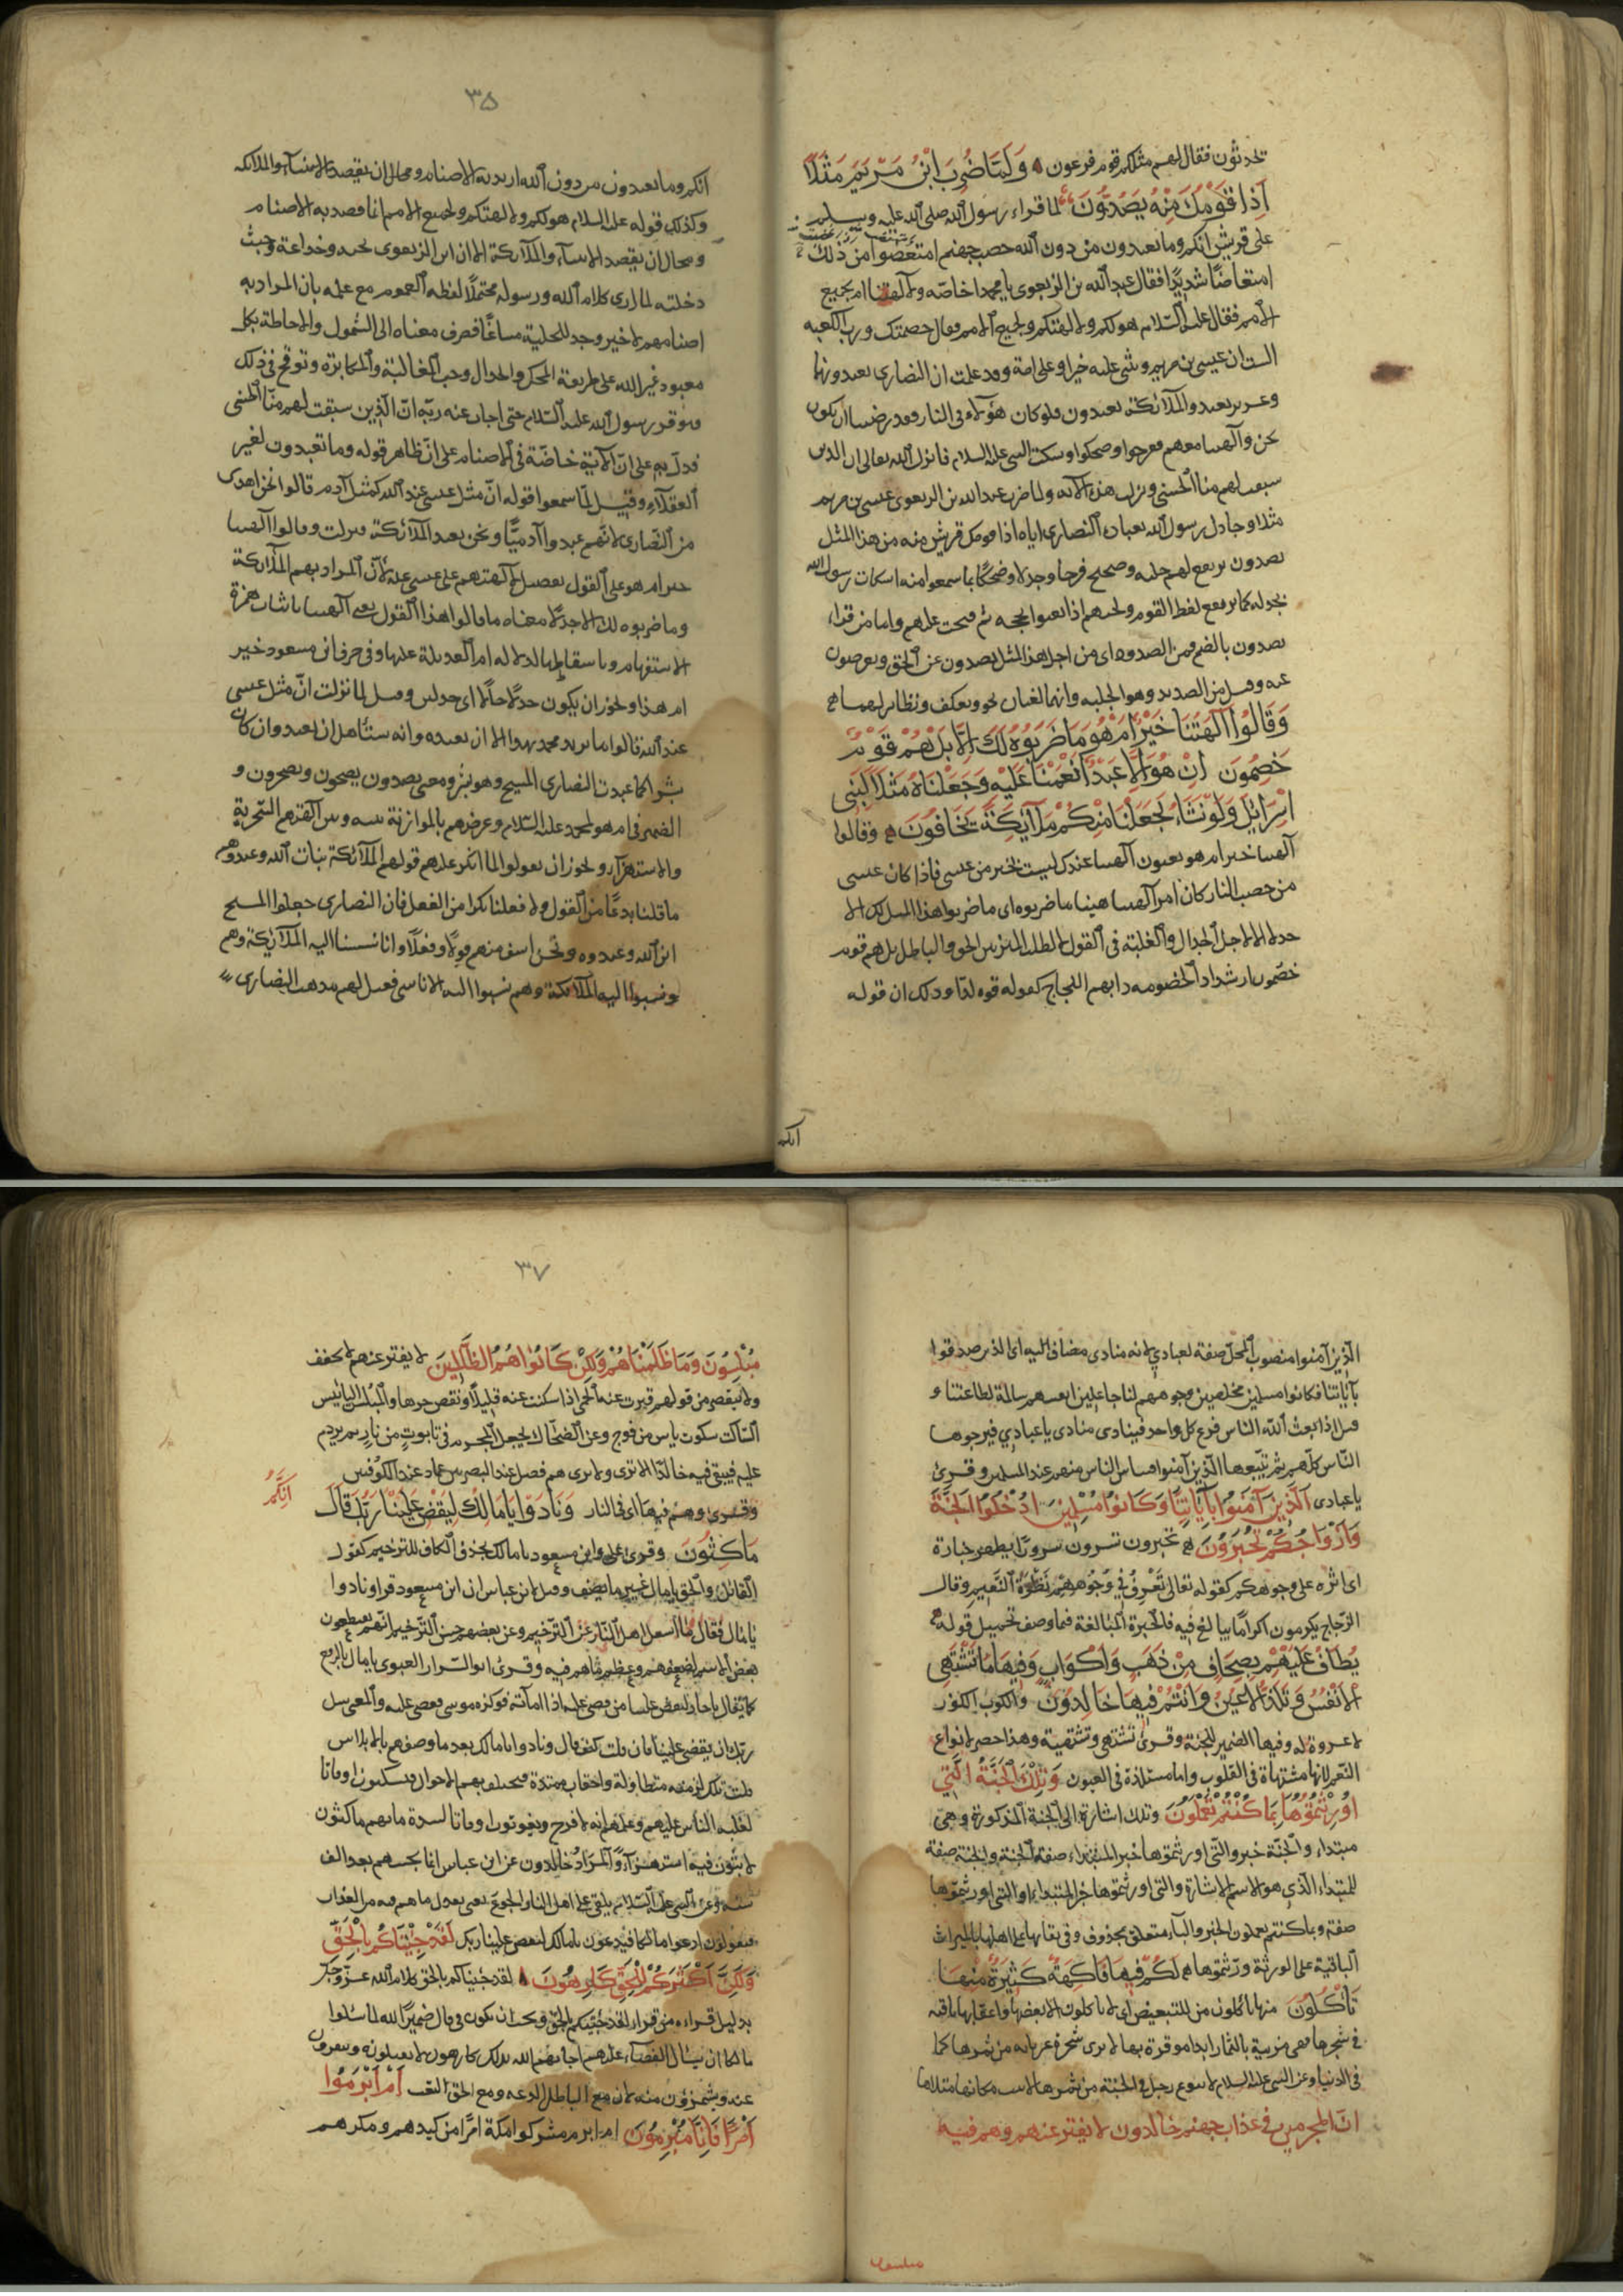 تحدثون فقال لهم مثلكم قوم فرعون وَلَمَّا ضُرِبَ ابْنُ مَرْيَمَ مَثَلًا
إِذَا قَوْمُكَ مِنْهُ يَصِدُّونَ لما قراء رسول الله صلى الله عليه وسلم
على قريش انكم وما تعبدون من دون الله حصب جهنم امتعضوا من ذلك
امتعاضا شديدا فقال عبد الله بن الزبعرى يا محمد اخاصة ولآلهتنا ام بجميع
الامم فقال عليه السلام هو لكم ولالهتكم ولجميع الامم فقال خصمتك ورب الكعبه
الست ان عيسى بن مريم وتثنى عليه خيرا وعلى امه وقد علمت ان النصارى يعبدونهما
وعزير يعبد والملائكة يعبدون فلو كان هؤلاء في النار فقد رضينا ان نكون
نحن وآلهتنا معهم ففرحوا وضحكوا وسكت النبى عليه السلام فانزل الله تعالى ان الذين
سبقت لهم منا الحسنى ونزلت هذه الآيه ولما ضرب عبد الله بن الزبعرى عيسى بن مريم
مثلا وجادل رسول الله بعبادة النصارى اياه اذا قومك قريش منه من هذا المثل
يصدون يرتفع لهم جلبه وضجيج فرحا وجذلا وضحكا بما سمعوا منه اسكات رسول الله
بجدله كما يرتفع لغط القوم ولجبهم اذا تعيوا بحجه ثم فتحت عليهم واما من قراء
يصدون بالضم فمن الصدود اى من اجل هذا المثل يصدون عن الحق ويعرضون
عنه وقيل من الصديد وهو الجلبه وانهما لغتان نحو يعكف ونظائر لهما
وَقَالُوا آلِهَتُنَا خَيْرٌ أَمْ هُوَ مَا ضَرَبُوهُ لَكَ إِلَّا بَلْ هُمْ قَوْمٌ
خَصِمُونَ إِنْ هُوَ إِلَّا عَبْدٌ أَنْعَمْنَا عَلَيْهِ وَجَعَلْنَاهُ مَثَلًا لِبَنِى
إِسْرَائِيلَ وَلَوْ نَشَاءُ لَجَعَلْنَا مِنْكُمْ مَلَائِكَةً يَخَافُونَ وقالوا
آلهتنا خير ام هو يعنون آلهتنا عندك ليست بخير من عيسى فاذا كان عيسى
من حصب النار كان امر آلهتنا هينا ما ضربوه اى ما ضربوا هذا المثل لك الا
جدلا الا لاجل الجدال والغلبة في القول لا لطلب الميز بين الحق والباطل بل هم قوم
خصمون لد شداد الخصومه دابهم اللجاج كقوله قوما لدا وذلك ان قوله
انكم
٣٥
انكم وما تعبدون من دون الله اريد به الاصنام ومحال ان يقصد به الانبياء والملائكه
وكذلك قوله عليه السلام هو لكم ولالهتكم ولجميع الامم انما قصد به الاصنام
ومحال ان يقصد الانبياء والملائكة الا ان ابن الزبعرى بخبه وخداعه وخبث
دخلته لما راى كلام الله ورسوله محتملا لفظه العموم مع علمه بان المراد به
اصنامهم لا غير وجد للحيلة مساغا فصرف معناه الى الشمول والاحاطة بكل
معبود غير الله على طريقة المحك والجدال وحب المغالبة والمكابرة وتوقح في ذلك
فتوقر رسول الله عليه السلام حتى اجاب عنه ربه ان الذين سبقت لهم منا الحسنى
فدل به على ان الآية خاصة في الاصنام على ان ظاهر قوله وما تعبدون لغير
العقلاء وقيل لما سمعوا قوله ان مثل عيسى عند الله كمثل آدم قالوا نحن اهدى
من النصارى لانهم عبدوا آدميا ونحن نعبد الملائكة فنزلت وقالوا آلهتنا
خير ام هو على القول تفضيل لآلهتهم على عيسى عليه لان المراد بهم الملائكة
وما ضربوه لك الا جدلا معناه ما قالوا هذا القول يعنى آلهتنا باثبات همزة
الاستفهام وباسقاطها لدلالة ام العديلة عليها وفى حرف ابن مسعود خير
ام هذا ويجوز ان يكون جدلا حالا اى جدلين وقيل لما نزلت ان مثل عيسى
عند الله قالوا ما يريد محمد بهذا الا ان نعبده وانه يستاهل ان يعبد وان كان
بشرا كما عبدت النصارى المسيح وهو بشر ومعنى يصدون يضجون ويضجرون و
الضمير في ام هو لمحمد عليه السلام وغرضهم بالموازنة بينه وبين آلهتهم السخرية
والاستهزاء ويجوز ان يقولوا لما انكر عليهم قولهم الملائكة بنات الله وعبدوهم
ما قلنا بدعا من القول ولا فعلنا نكرا من الفعل فان النصارى جعلوا المسيح
ابن الله وعبدوه ونحن اسف منهم قولا وفعلا وانا نسبنا اليه الملائكة وهم
ونسبوا اليه الملائكة وهم نسبوا اليه الاناسى فقيل لهم مذهب النصارى
الذين آمنوا منصوب المحل صفة لعبادي لانه منادى مضاف اليه اى الذين صدقوا
بآياتنا فكانوا مسلمين مخلصين وجوههم لنا جاعلين انفسهم سالمة لطاعتنا و
قيل اذا بعث الله الناس فزع كل واحد فينادى منادى يا عبادي فيرجوها
الناس كلهم ثم يتبعها الذين آمنوا فيياس الناس منهم عند المسلمين وقرئ
يا عبادى الَّذِينَ آمَنُوا بِآيَاتِنَا وَكَانُوا مُسْلِمِينَ ادْخُلُوا الْجَنَّةَ
وَأَزْوَاجُكُمْ تُحْبَرُونَ تحبرون تسرون سرورا يظهر حباره
اى اثره على وجوهكم كقوله تعالى تعرف في وجوههم نضرة النعيم وقال
الزجاج يكرمون اكراما يبالغ فيه فالحبرة المبالغة فيما وصف بجميل قوله
يُطَافُ عَلَيْهِمْ بِصِحَافٍ مِنْ ذَهَبٍ وَأَكْوَابٍ وَفِيهَا مَا تَشْتَهِى
الْأَنْفُسُ وَتَلَذُّ الْأَعْيُنُ وَأَنْتُمْ فِيهَا خَالِدُونَ والكوب الكوز
لا عروة له وفيها الضمير للجنة وقرئ تشتهى وتشتهية وهذا حصر لانواع
النعم لانها مشتهاة في القلوب واما مستلذة في العيون وَتِلْكَ الْجَنَّةُ الَّتِي
أُورِثْتُمُوهَا بِمَا كُنْتُمْ تَعْمَلُونَ وتلك اشارة الى الجنة المذكورة وهى
مبتداء والجنة خبر والتى اورثتموها خبر المبتداء صفة الجنة والجنة صفة
للمبتداء الذي هو الاسم الاشارة والتى اورثتموها خبر المبتداء او التى اورثتموها
صفة وبما كنتم تعملون الخبر والباء متعلق بمحذوف وفى بقائها على اهلها بالميراث
الباقية على الورثة ورثتموها لَكُمْ فِيهَا فَاكِهَةٌ كَثِيرَةٌ مِنْهَا
تَأْكُلُونَ منها تاكلون من للتبعيض اى لا تاكلون الا بعضها واعقابها باقيه
في شجرها فهى مزينة بالثمار ابدا موقرة بها لا ترى شجرة عريانه من ثمرها كما
في الدنيا وعن النبى عليه السلام لا ينزع رجل في الجنة من ثمرها الا نبت مكانها مثلاها
ان المجرمين في عذاب جهنم خالدون لا يفتر عنهم وهم فيه
مبلسون
٣٧
مُبْلِسُونَ وَمَا ظَلَمْنَاهُمْ وَلَكِنْ كَانُوا هُمُ الظَّالِمِينَ لا يفتر عنهم لا يخفف
ولا ينقص من قولهم فترت عنه الحمى اذا سكنت عنه قليلا ونقص حرها والمبلس اليائس
الساكت سكوت ياس من فرج وعن الضحاك يجعل المجرم في تابوت من نار ثم يردم
عليه فيبقى فيه خالدا لا يرى ولا يرى هم فصل عند البصريين عماد عند الكوفيين
وقرئ وهم فيها اى في النار وَنَادَوْا يَا مَالِكُ لِيَقْضِ عَلَيْنَا رَبُّكَ قَالَ
إِنَّكُمْ
مَاكِثُونَ وقرئ على وابن مسعود يا مال بحذف الكاف للترخيم كقول
القائل والحق يا مال غير ما تصف وقيل لابن عباس ان ابن مسعود قرا ونادوا
يا مال فقال ما اشغل اهل النار عن الترخيم وعن بعضهم حسن الترخيم انهم يقتطعون
بعض الاسم لضعفهم وعظم ما هم فيه وقرئ ابو السرار الغنوى يا مال بالرفع
كما يقال يا حار ليقض علينا من قضى عليه اذا اماته فوكزه موسى فقضى عليه والمعنى سل
ربك ان يقضى علينا فان قلت كيف قال ونادوا يا مالك بعد ما وصفهم بالابلاس
قلت تلك ازمنة متطاولة واحقاب ممتدة فتختلف بهم الاحوال فيسكتون اوقاتا
لغلبة الياس عليهم وعلمهم انه لا فرج ويغوثون اوقاتا لشدة ما بهم ماكثون
لابثون فيه استهزاء والمراد خالدون عن ابن عباس انما يجيبهم بعد الف
سنه وعن النبى عليه السلام يلقى على اهل النار الجوع حتى يعدل ما هم فيه من العذاب
فيقولون ادعوا مالكا فيدعون يا مالك ليقض علينا ربك لَقَدْ جِئْنَاكُمْ بِالْحَقِّ
وَلَكِنَّ أَكْثَرَكُمْ لِلْحَقِّ كَارِهُونَ لقد جئناكم بالحق كلام الله عز وجل
بدليل قراءه من قراء لقد جئتكم بالحق ويجب ان يكون في قال ضمير الله لما سئلوا
مالكا ان يسال القضاء عليهم اجابهم الله بذلك كارهون لا تقبلونه وتنفرون
عنه وتشمئزون منه لان مع الباطل الدعه ومع الحق التعب أَمْ أَبْرَمُوا
أَمْرًا فَإِنَّا مُبْرِمُونَ ام ابرم مشركوا مكة امرا من كيدهم ومكرهم